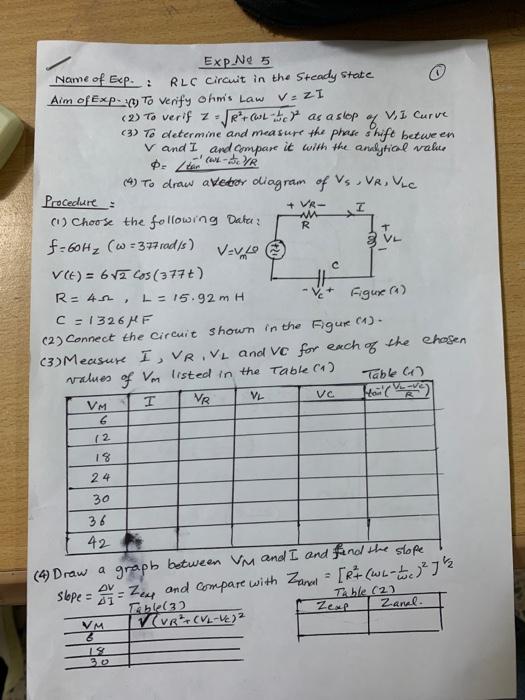 Exp. No 5
①
Name of Exp. : RLC Circuit in the Steady State
Aim of Exp. : (1) To Verify ohm's Law V = ZI
(2) To verif Z = √R²+(ωL-1/ωc)² as a slop of V, I Curve
(3) To determine and measure the phase shift between
V and I and Compare it with the analytical value
Φ = ∠tan⁻¹(ωL-1/ωc)/R
(4) To draw a vector diagram of Vs, VR, VLC
Procedure :
(1) Choose the following Data:
f = 60Hz (ω = 377rad/s)
V(t) = 6√2 Cos(377t)
R = 4Ω, L = 15.92 mH
C = 1326 μF
+ VR -
I
R
+
VL
-
V=Vm∠0
C
- Vc +
Figure (1)
(2) Connect the Circuit shown in the Figure (1).
(3) Measure I, VR, VL and VC for each of the chosen
values of Vm listed in the Table (1)
Table (1)
VM I VR VL VC tan⁻¹(VL-VC/R)
6
12
18
24
30
36
42
(4) Draw a graph between VM and I and find the slope
slope = ΔV/ΔI = Zexp and Compare with Zanal = [R²+(ωL-1/ωc)²]^1/2
Table (3)
VM √(VR²+(VL-VC)²
6
18
30
Table (2)
Zexp Zanal.